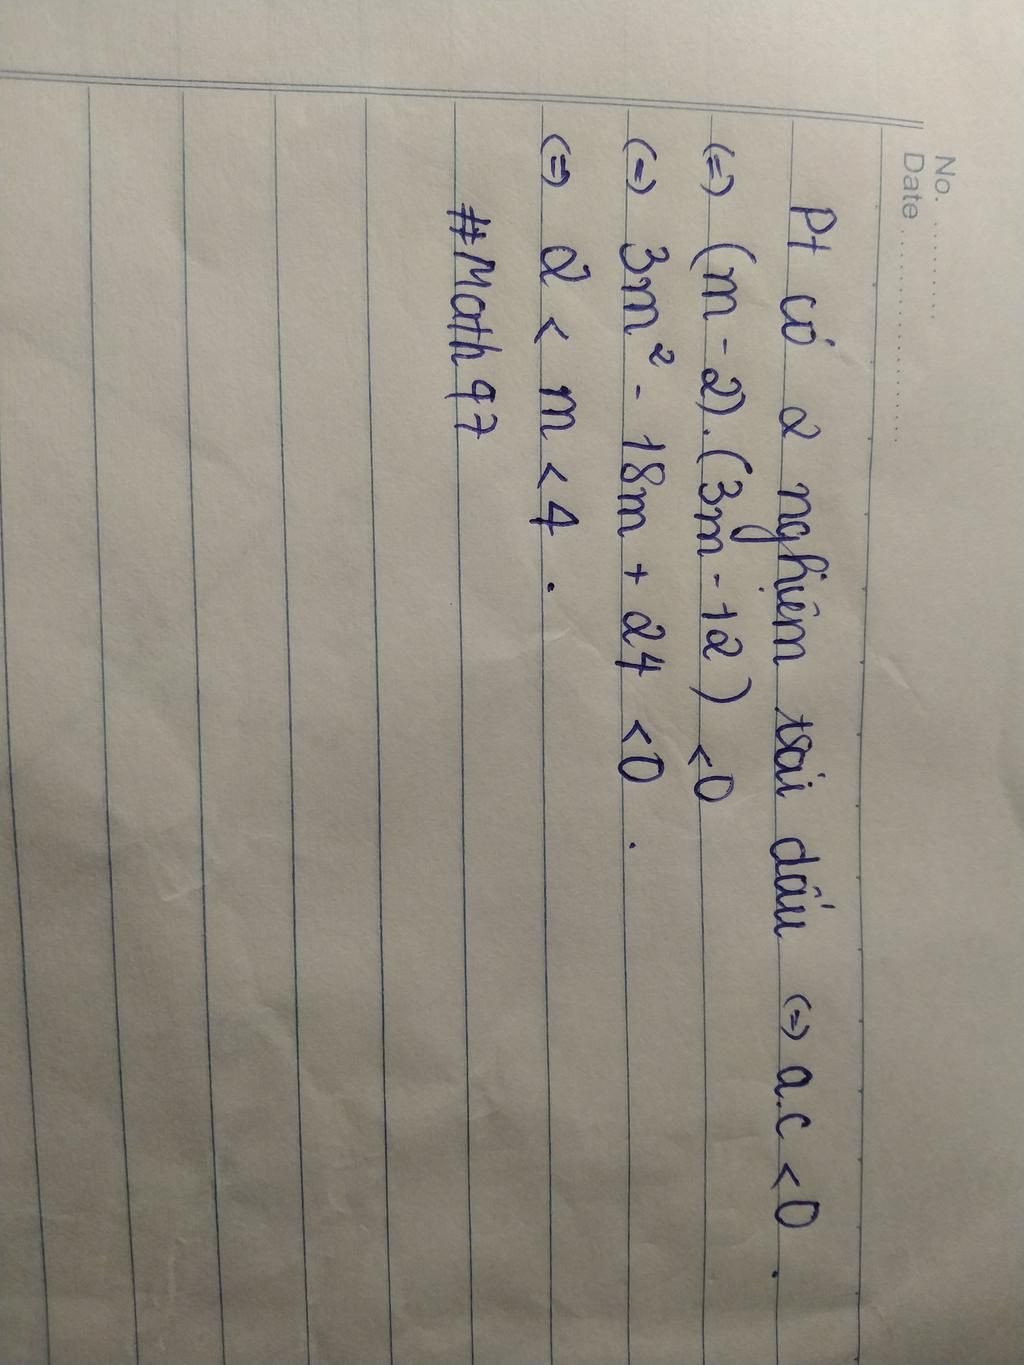 No. ..........
Date ......................
Pt có 2 nghiệm trái dấu (=) a.c < 0 .
(=) (m - 2).(3m - 12) < 0
(=) 3m² - 18m + 24 < 0 .
(=) 2 < m < 4 .
#Math97